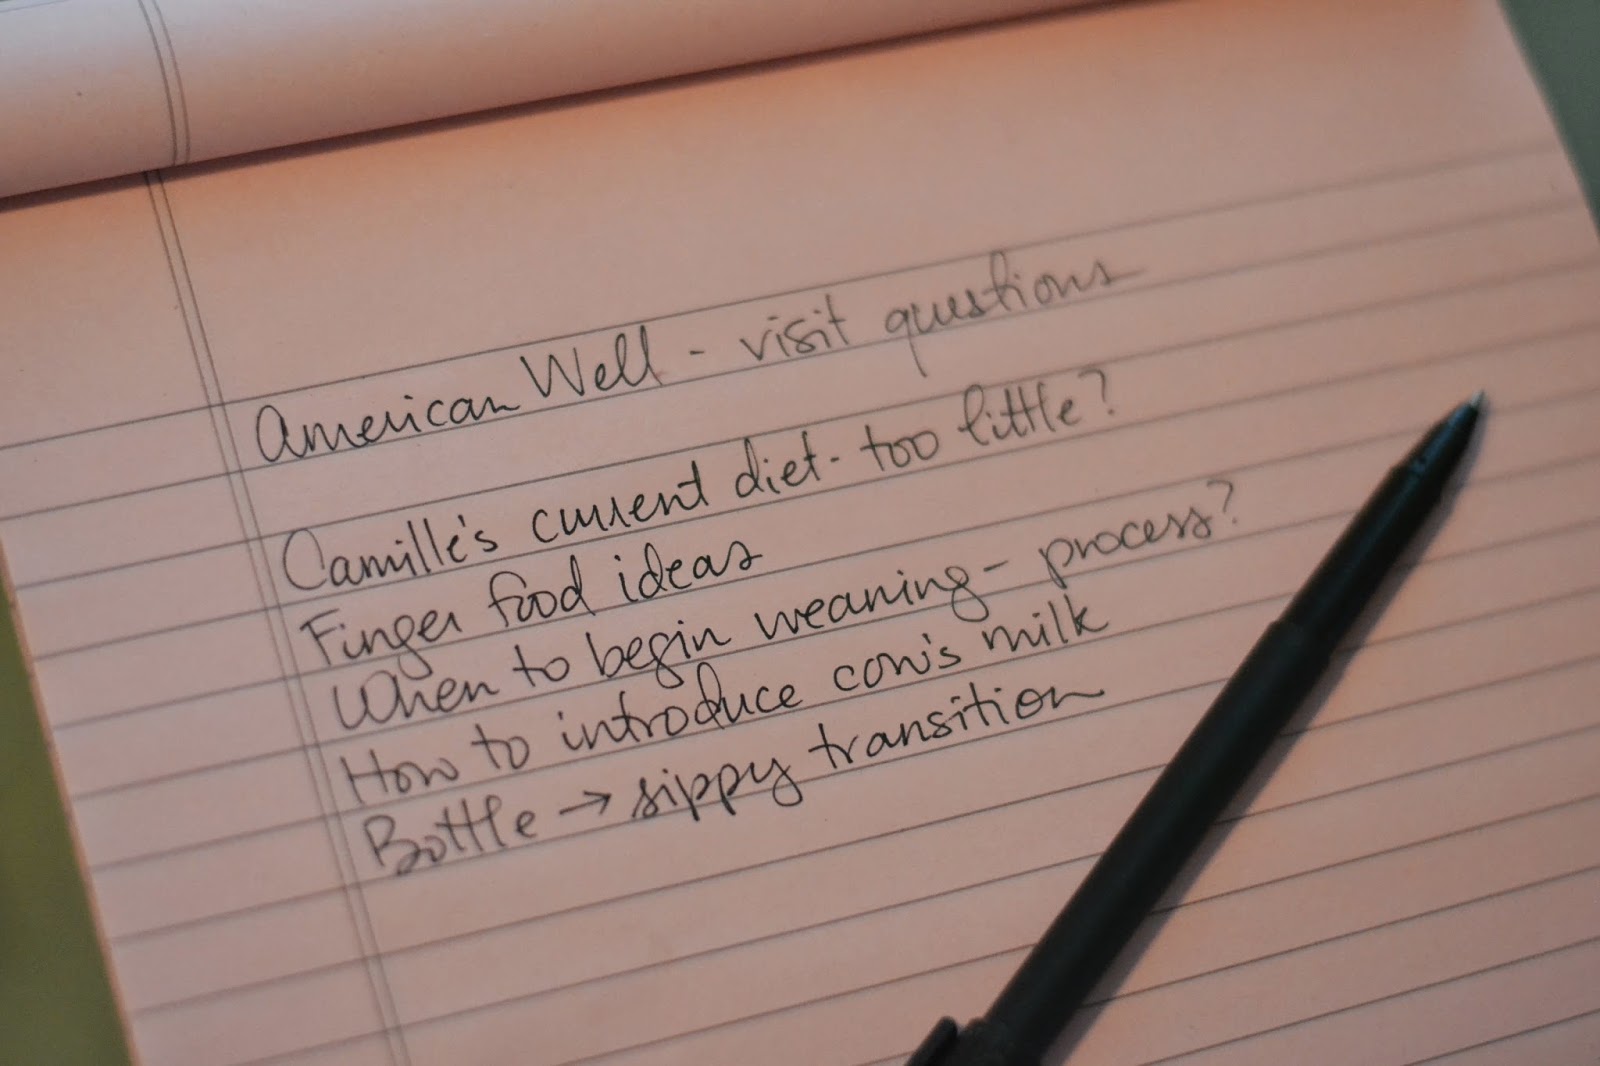 American Well - visit questions
Camille's current diet - too little?
Finger food ideas
When to begin weaning - process?
How to introduce cow's milk
Bottle → sippy transition